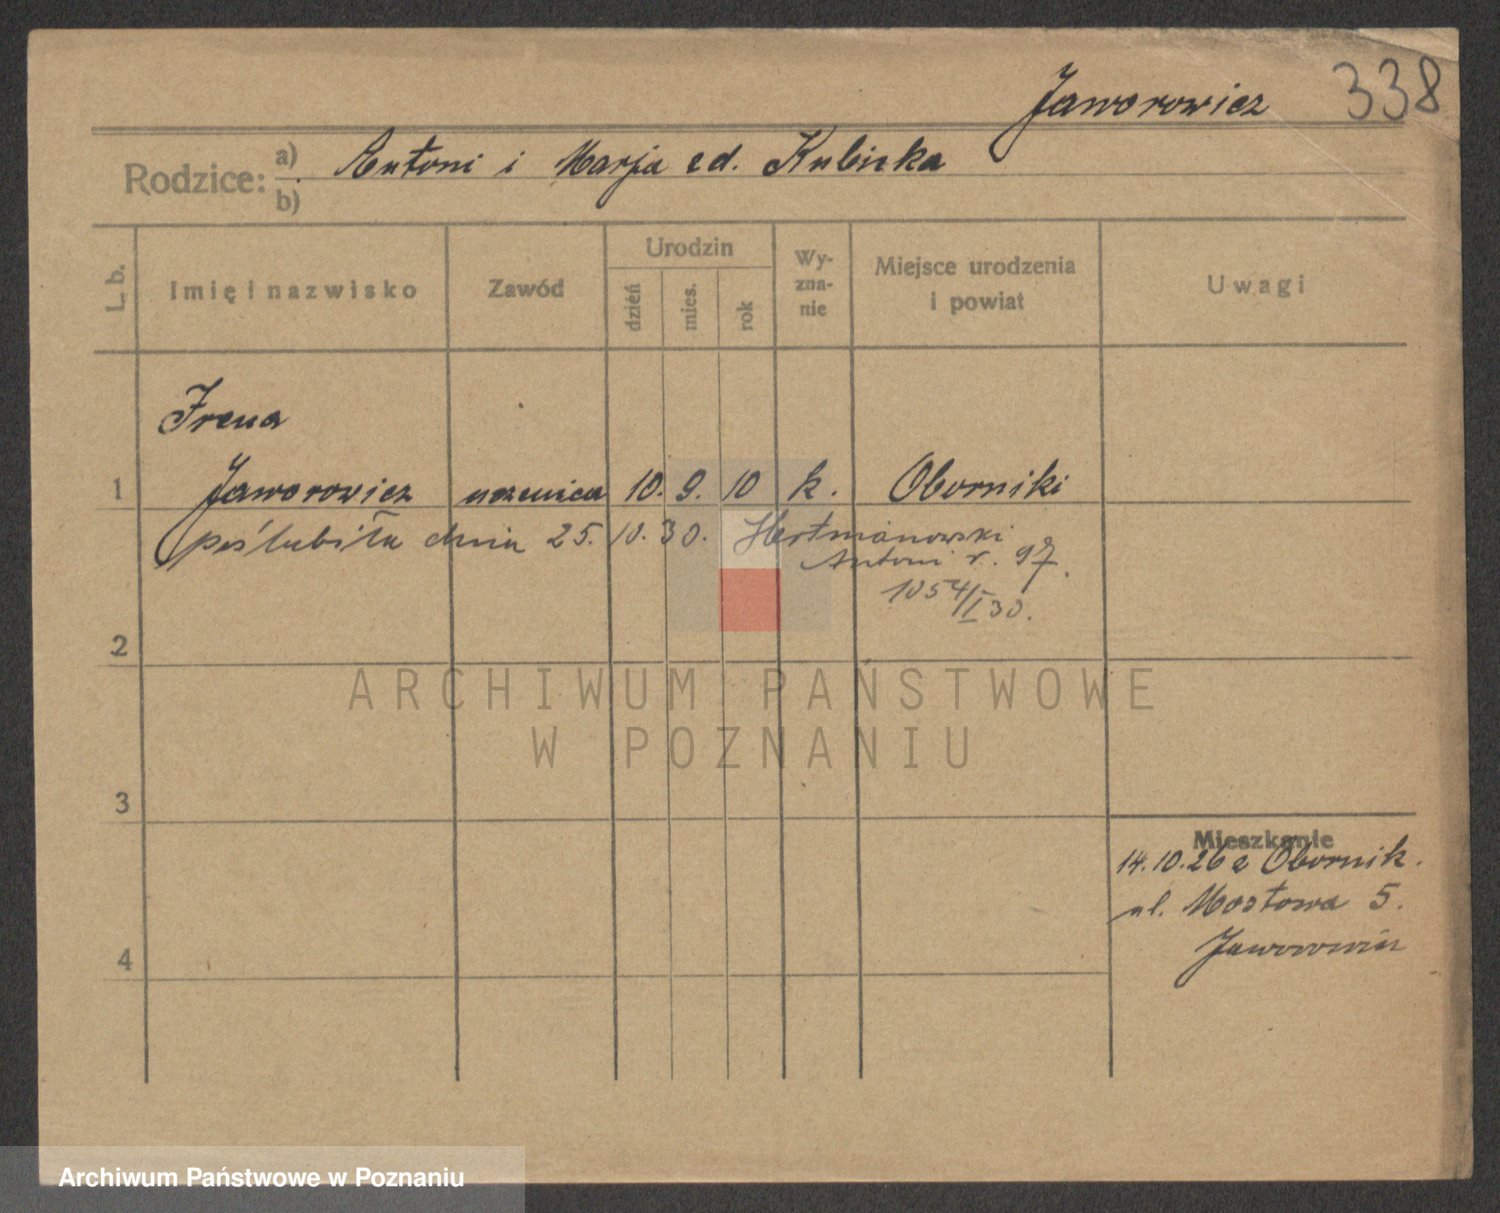 Jaworowicz 338
Rodzice: a) Antoni i Marja zd. Kubicka
b)
L. b. Imię i nazwisko Zawód Urodzin dzień mies. rok Wyznanie Miejsce urodzenia i powiat Uwagi
Irena
1 Jaworowicz uczenica 10. 9. 10 k. Oborniki
poślubiła dnia 25. 10. 30. Hertmanowski
Antoni r. 97.
1054/I 30.
2
ARCHIWUM PAŃSTWOWE
W POZNANIU
3
Mieszkanie
14.10.26 z Obornik.
ul. Mostowa 5.
4 Jaworowicz
Archiwum Państwowe w Poznaniu